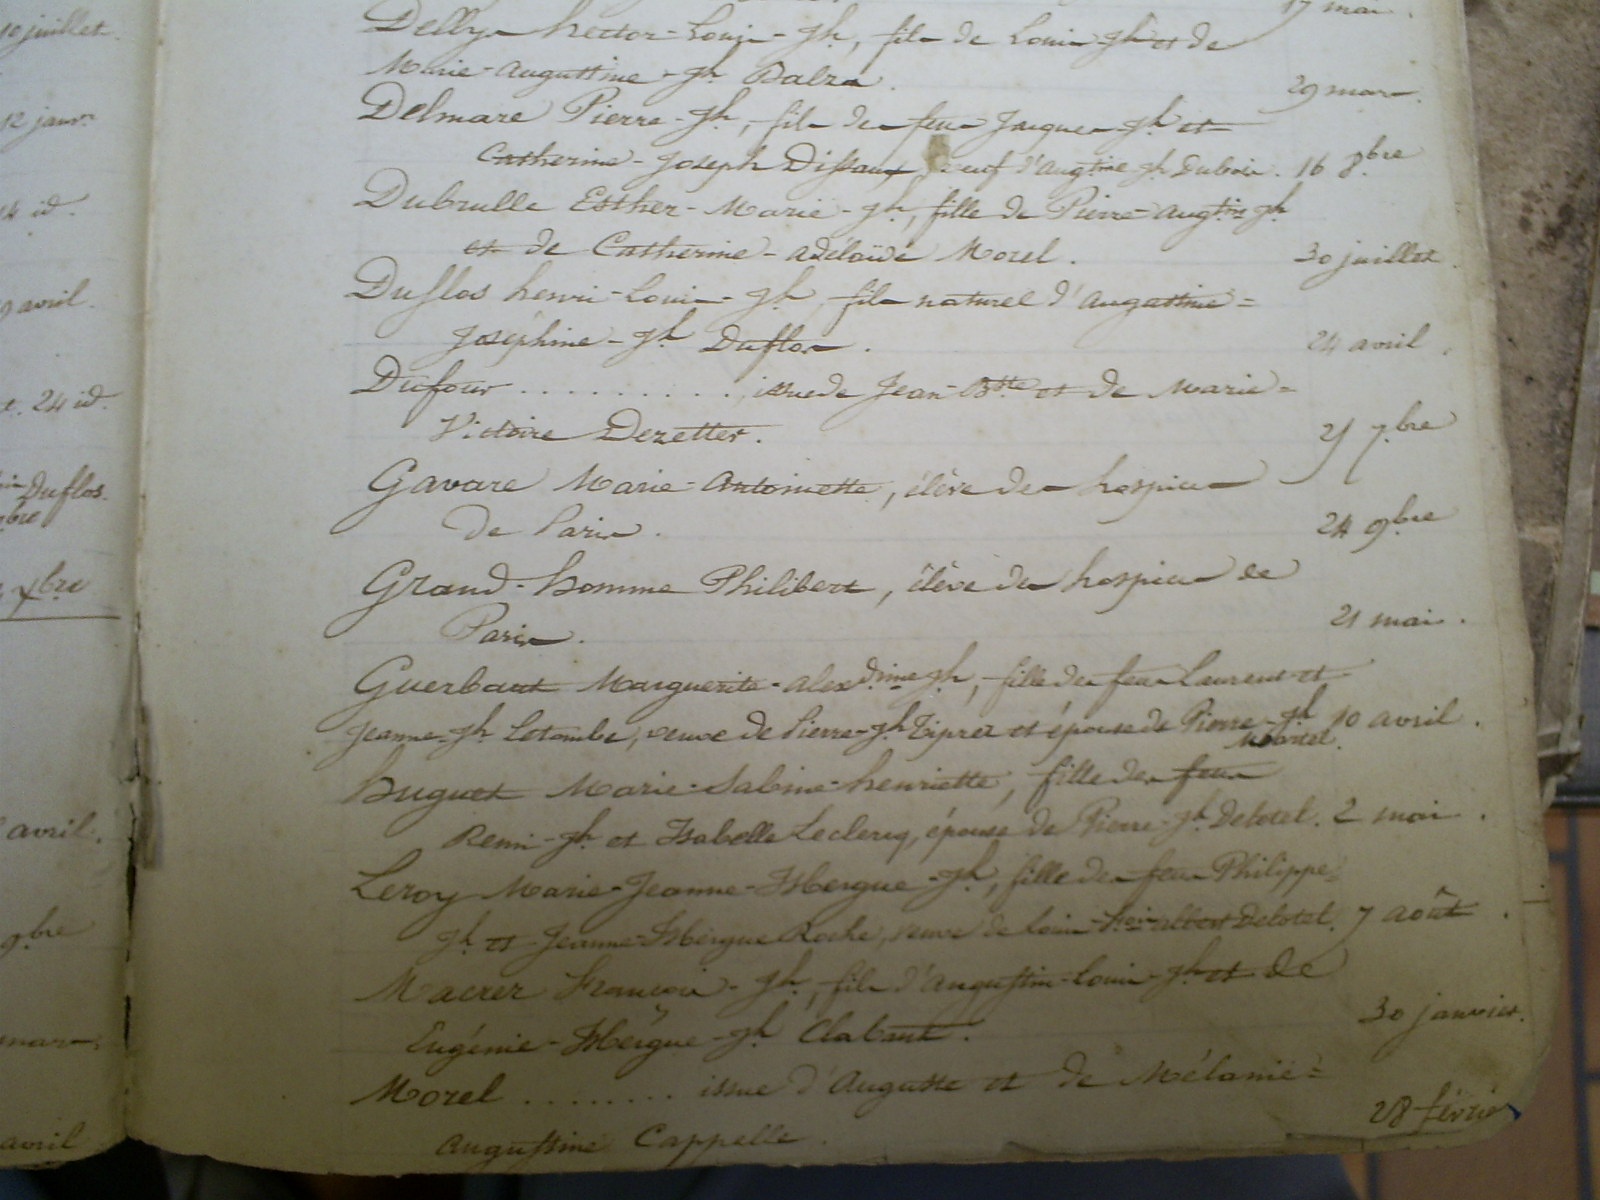 10 juillet.
12 janv.r
14 id.
9 avril.
24 id.
Duflos.
bre
xbre
avril.
9.bre
mars.
avril
17 mai.
Delbye hector-Louis-Jh, fils de Louis-Jh et de
Marie-Augustine-Jh Balza. 29 mars.
Delmare Pierre-Jh, fils de feu Jacques-Jh et
Catherine-Joseph Dissaux, veuf d'Aug.tine Jh Dubois. 16 8.bre
Dubrulle Esther-Marie-Jh, fille de Pierre-Aug.tin Jh
et de Catherine-adélaïde Morel. 30 juillet.
Duflos henri-Louis-Jh, fils naturel d'Augustine=
Joséphine-Jh Duflos. 24 avril.
Dufour .........., issue de Jean-B.tte et de Marie=
Victoire Dezetter. 21 7.bre
Gavare Marie-Antoinette, élève des hospices
de Paris. 24 9.bre
Grand-homme Philibert, élève des hospices de
Paris. 21 mai.
Guerbaut Marguerite-Alex.drine Jh, fille de feu Laurent et
Jeanne-Jh Letombe, veuve de Pierre-Jh Tiprez et épouse de Pierre-Jh 10 avril.
Martel.
huguet Marie-Sabine-henriette, fille de feu
Remi-Jh et Isabelle Leclercq, épouse de Pierre-Jh Delotel. 2 mai.
Leroy Marie-Jeanne-Isbergue-Jh, fille de feu Philippe=
Jh et Jeanne-Isbergue Roche, veuve de Louis-F.ois-albert Delotel. 7 août.
Macrez François-Jh, fils d'Augustin-Louis-Jh et de
Eugénie-Isbergue-Jh Clabaut. 30 janvier.
Morel ........ issue d'Auguste et de Mélanie=
Augustine Cappelle. 28 février